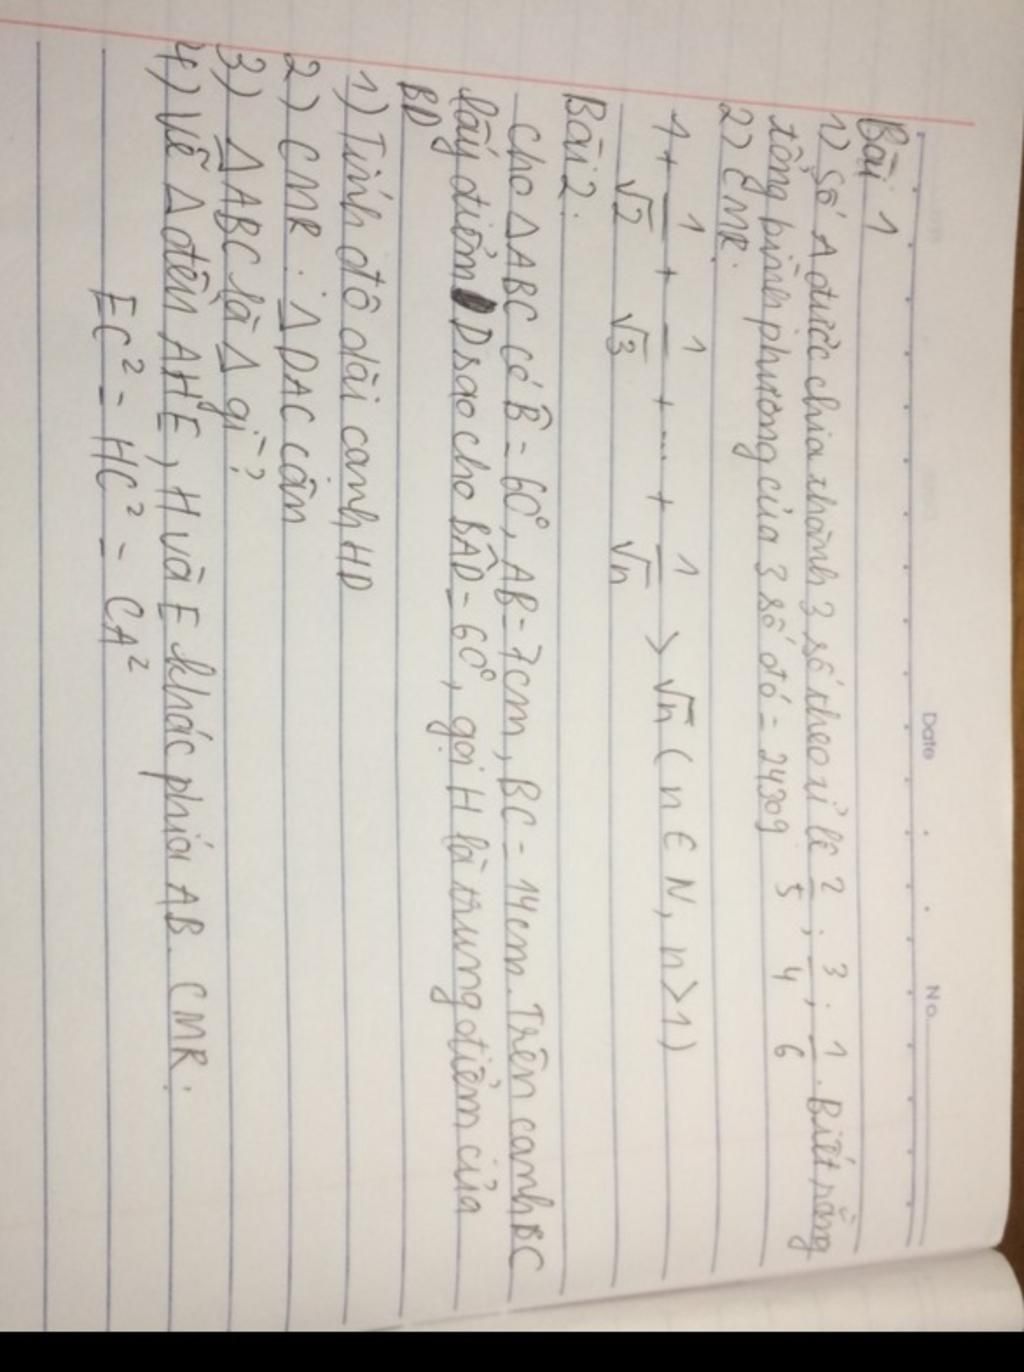 Date No.
Bài 1
1) Số A được chia thành 3 số theo tỉ lệ 2/5 ; 3/4 ; 1/6. Biết rằng
tổng bình phương của 3 số đó = 24309
2) CMR:
1 + 1/√2 + 1/√3 + ... + 1/√n > √n (n ∈ N, n>1)
Bài 2:
Cho Δ ABC có B̂ = 60°, AB = 7cm, BC = 14cm. Trên cạnh BC
lấy điểm D sao cho BÂD = 60°, gọi H là trung điểm của
BD
1) Tính độ dài cạnh HD
2) CMR: Δ DAC cân
3) Δ ABC là Δ gì?
4) Vẽ Δ đều AHE, H và E khác phía AB. CMR:
EC² - HC² = CA²